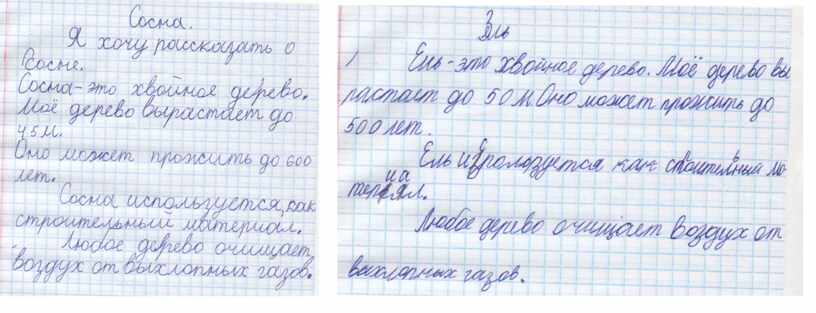 Сосна.
Я хочу рассказать о
Сосне.
Сосна-это хвойное дерево.
Моё дерево вырастает до
45 м.
Оно может прожить до 600
лет.
Сосна используется, как
строительный материал.
Любое дерево очищает
воздух от выхлопных газов.
Ель
Ель-это хвойное дерево. Моё дерево вы
растает до 50 м. Оно может прожить до
500 лет.
как строительный ма-
териал.
Любое дерево очищает воздух от
выхлопных газов.